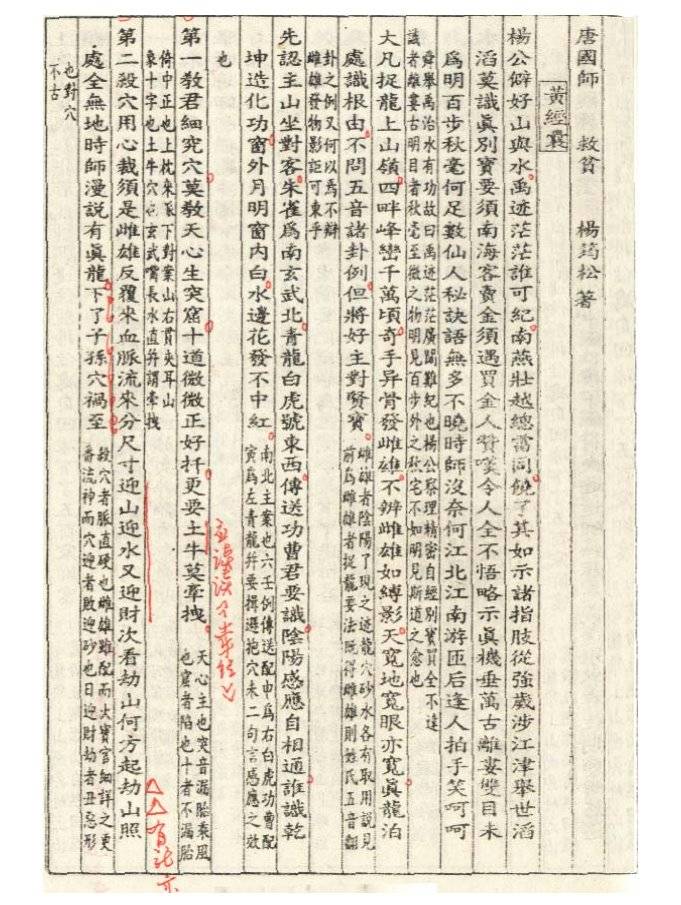 唐國師 救貧 楊筠松 著
黃經囊
楊公僻好山與水禹迹茫茫誰可紀南燕壯越總當同饒了其如示諸指肢從強歲涉江津舉世滔
滔莫識眞別寶要須南海客賣金須遇買金人贊嘆令人全不悟略示眞機垂萬古離婁雙目未
爲明百步秋毫何足數仙人秘訣語無多不曉時師沒奈何江北江南游匝后逢人拍手笑呵呵
舜舉禹治水有功故曰禹迹茫茫廣闊難紀也楊公察理精密自經別寶買全不達
識者離婁古明目者秋毫至微之物明見百步外之秋毫不如明見斯道之愈也
大凡捉龍上山嶺四畔峰巒千萬頃奇手异骨發雌雄不辨雌雄如縛影天寬地寬眼亦寬眞龍泊
處識根由不問五音諸卦例但將好主對賢賓
雌雄者陰陽了現之迹龍穴砂水各有取用說見
前爲雌雄者捉龍要法既得雌雄則姓氏五音翻
卦之例又何以爲不辯
雌雄發物影詎可東乎
先認主山坐對客朱雀爲南玄武北青龍白虎號東西傳送功曹君要識陰陽感應自相通誰識乾
坤造化功窗外月明窗內白水邊花發不中紅
南北主案也六壬例傳送配申爲右白虎功曹配
寅爲左青龍幷要揖遜抱穴末二句言感應之效
也
第一教君細究穴莫教天心生突窟十道微微正好扦更要土牛莫牽拽
天心主也突音漏胎乘風
也窟者陷也十者不漏胎
倚中正也上枕來脈下對案山右貫夾耳山
象十字也土牛穴后玄武嘴長水直幷謂牽拽
第二殺穴用心裁須是雌雄反覆來血脈流來分尺寸迎山迎水又迎財次看劫山何方起劫山照
處全無地時師漫說有眞龍下了子孫穴禍至
殺穴者脈直硬也雌雄雖配而大寶官細詳之更
番流神而穴迎者敗迎砂也日迎財劫者丑惡形
也對穴
不古